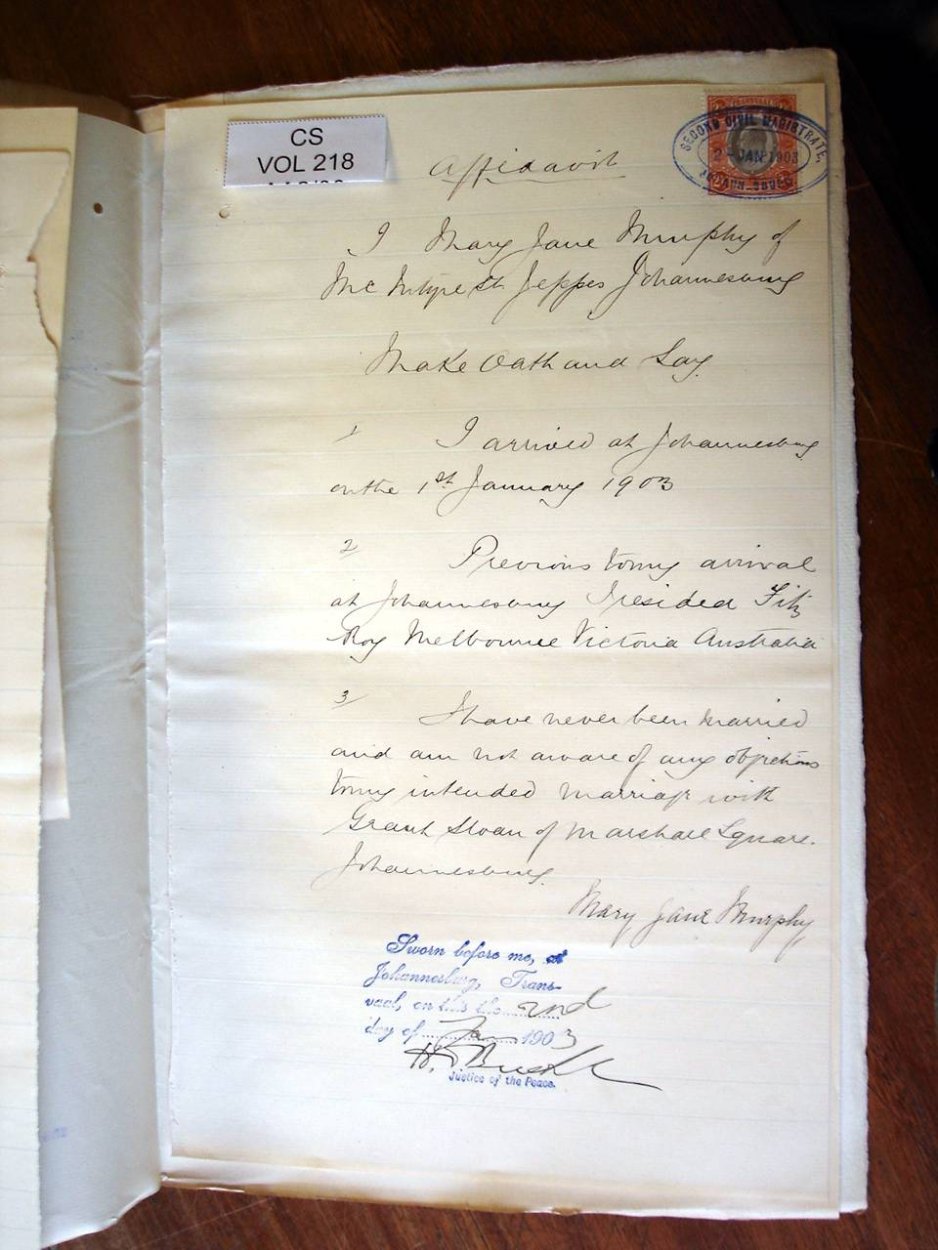 CS
VOL 218
SECOND CIVIL MAGISTRATE,
2-JAN 1903
Affidavit
I Mary Jane Murphy of
Mc Intyre St Jeppes Johannesburg
Make Oath and Say
1 I arrived at Johannesburg
on the 1st January 1903
2 Previous to my arrival
at Johannesburg I resided Fitz
Roy Melbourne Victoria Australia
3 I have never been married
and am not aware of any objections
to my intended marriage with
Grant Sloan of Marshall Square.
Johannesburg.
Mary Jane Murphy
Sworn before me, at
Johannesburg, Trans-
vaal, on this the 2nd
day of Jan 1903
Justice of the Peace.